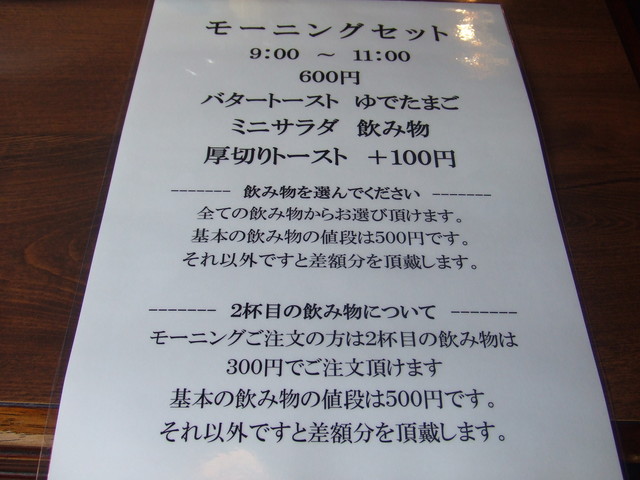 モーニングセット
9:00 ～ 11:00
600円
バタートースト ゆでたまご
ミニサラダ 飲み物
厚切りトースト ＋100円
------- 飲み物を選んでください -------
全ての飲み物からお選び頂けます。
基本の飲み物の値段は500円です。
それ以外ですと差額分を頂戴します。
------- 2杯目の飲み物について -------
モーニングご注文の方は2杯目の飲み物は
300円でご注文頂けます
基本の飲み物の値段は500円です。
それ以外ですと差額分を頂戴します。